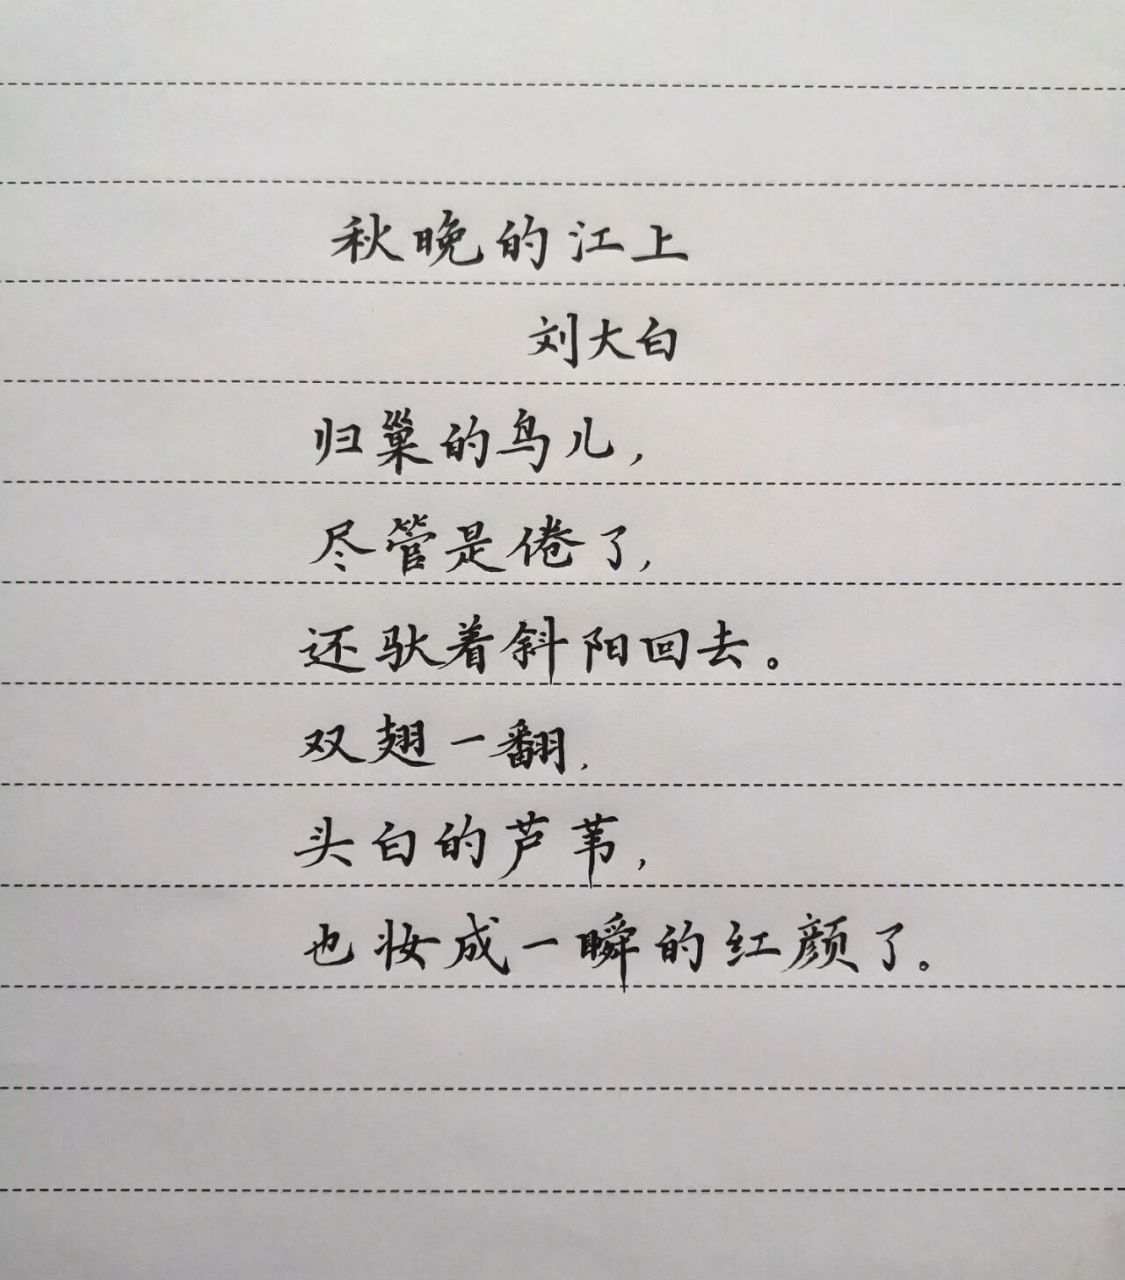 秋晚的江上
刘大白
归巢的鸟儿，
尽管是倦了，
还驮着斜阳回去。
双翅一翻，
头白的芦苇，
也妆成一瞬的红颜了。